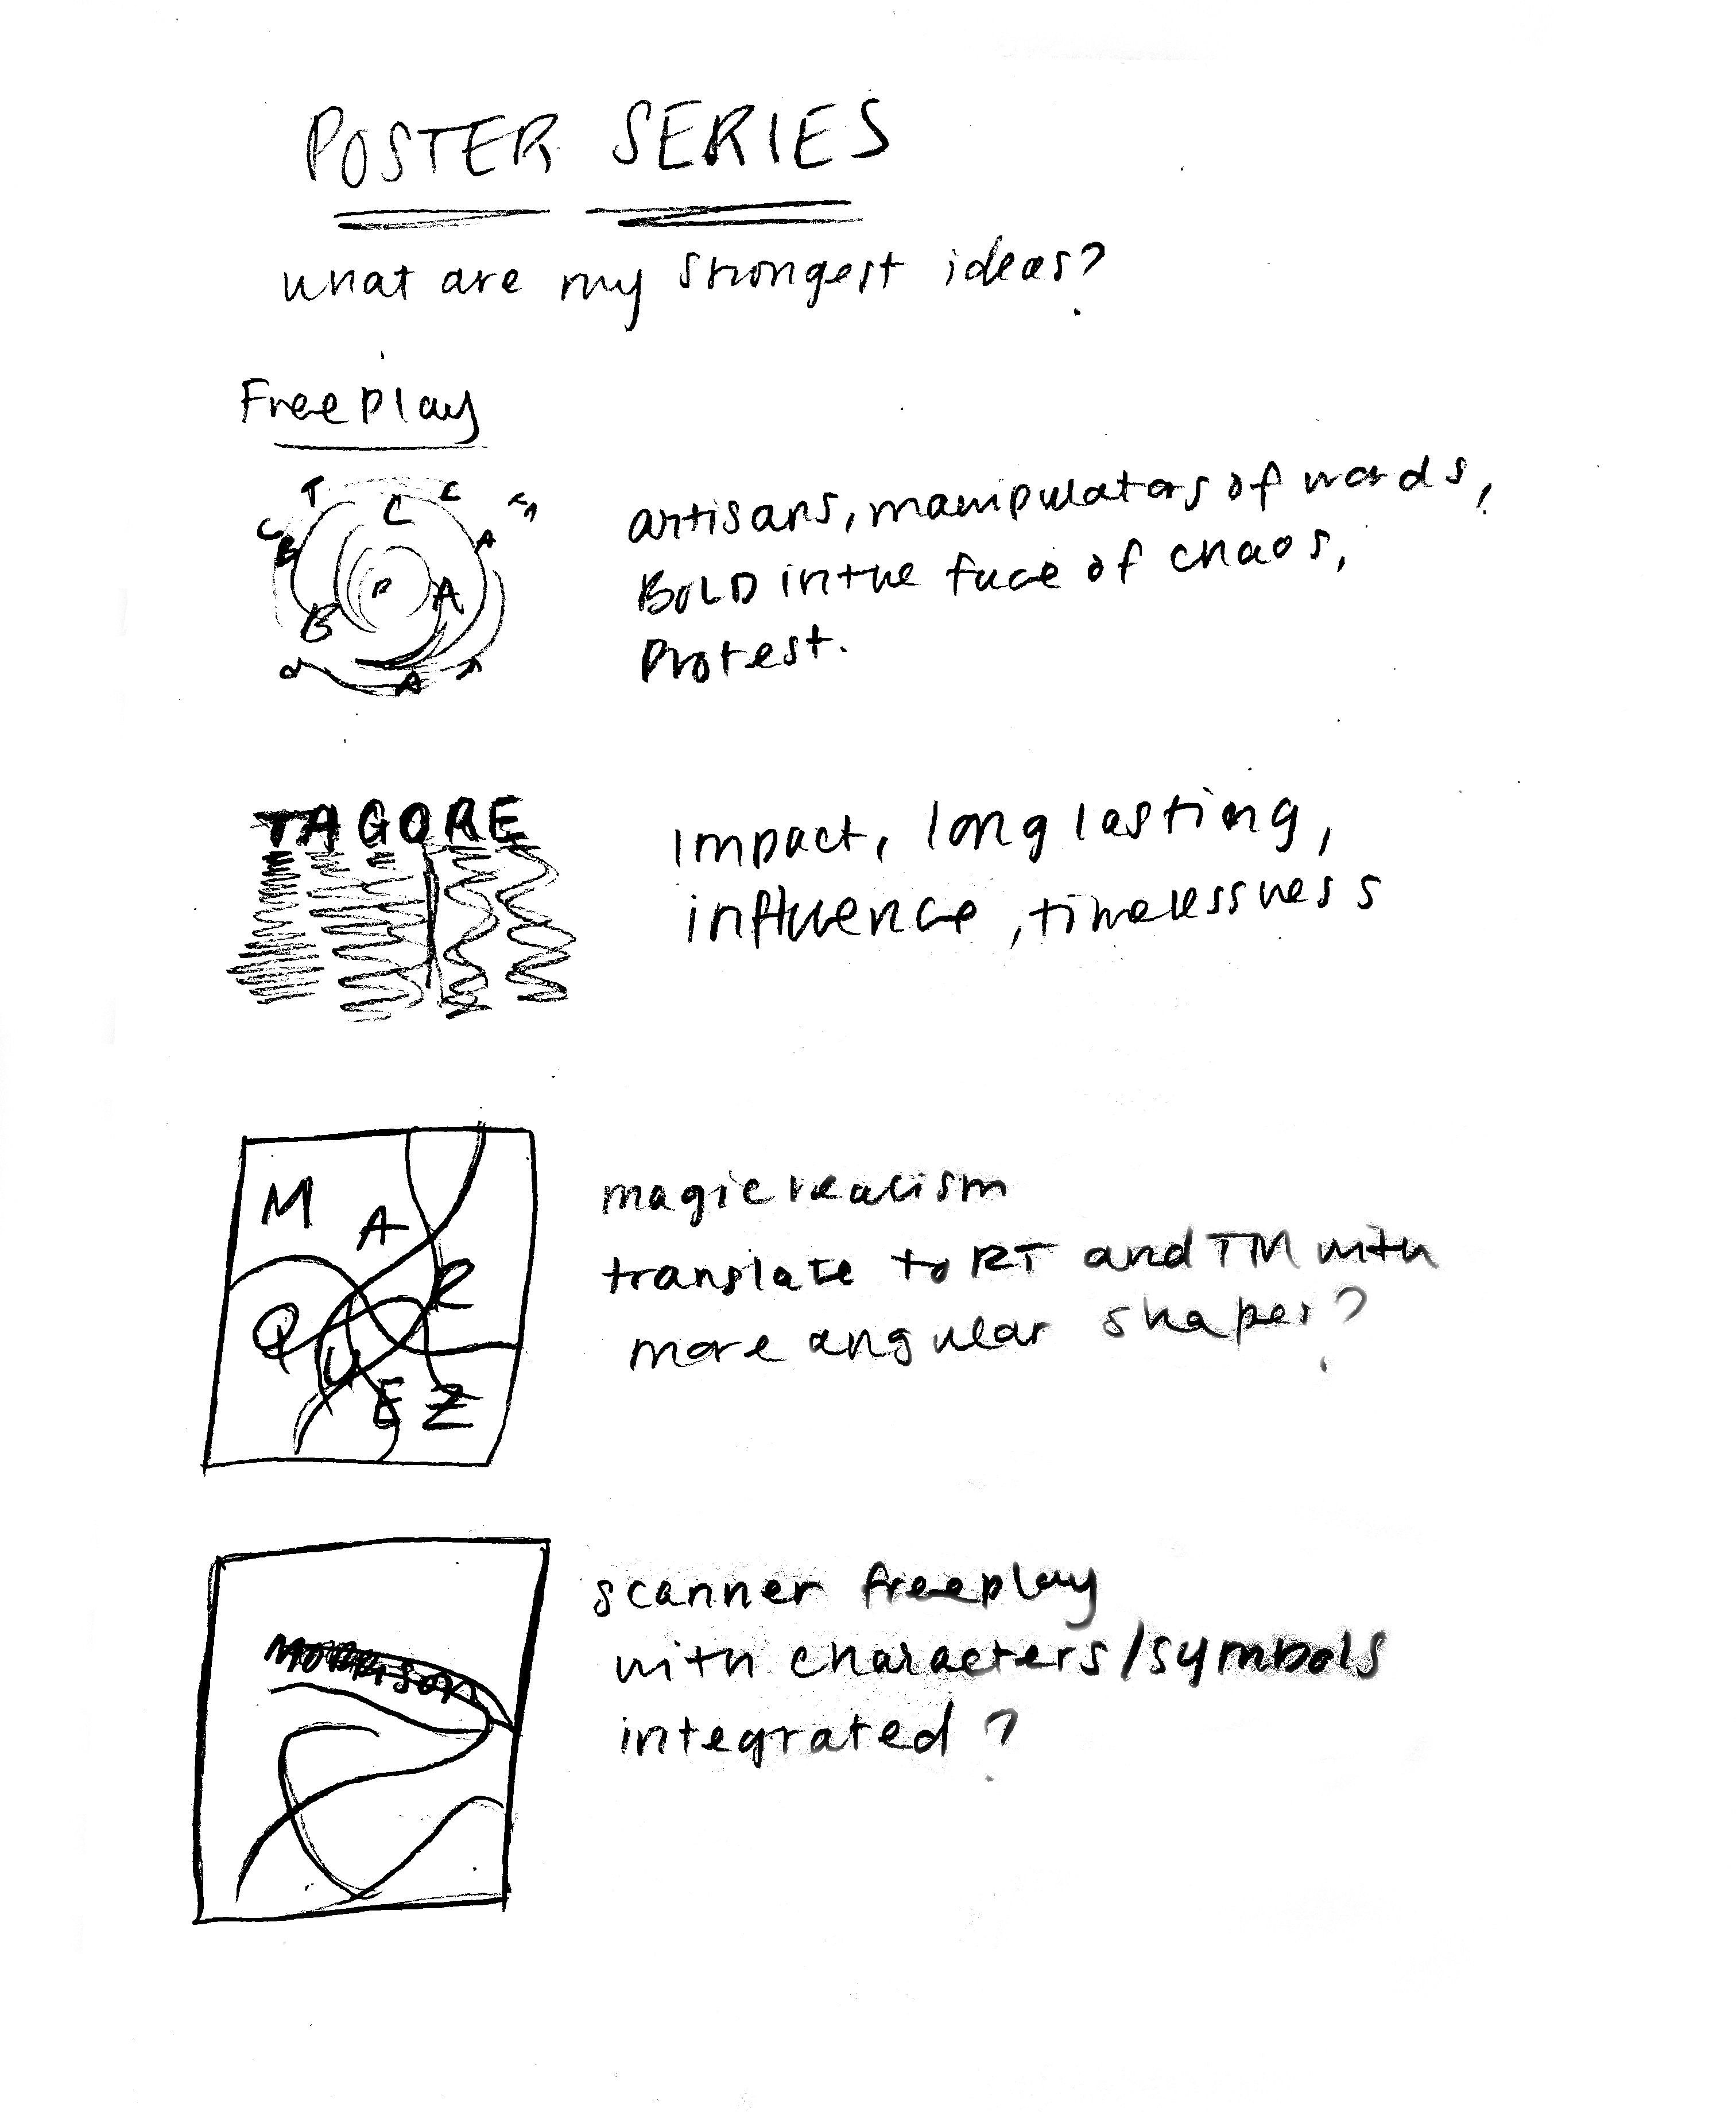 POSTER SERIES
what are my strongest ideas?
Freeplay
T C C
A
B
R A
B
A
artisans, manipulators of words,
BOLD in the face of chaos,
Protest.
TAGORE
Impact, long lasting,
influence, timelessness
M A R
Q U E Z
magic realism
translate to RT and TM with
more angular shapes?
MORRISON
scanner freeplay
with characters/symbols
integrated?